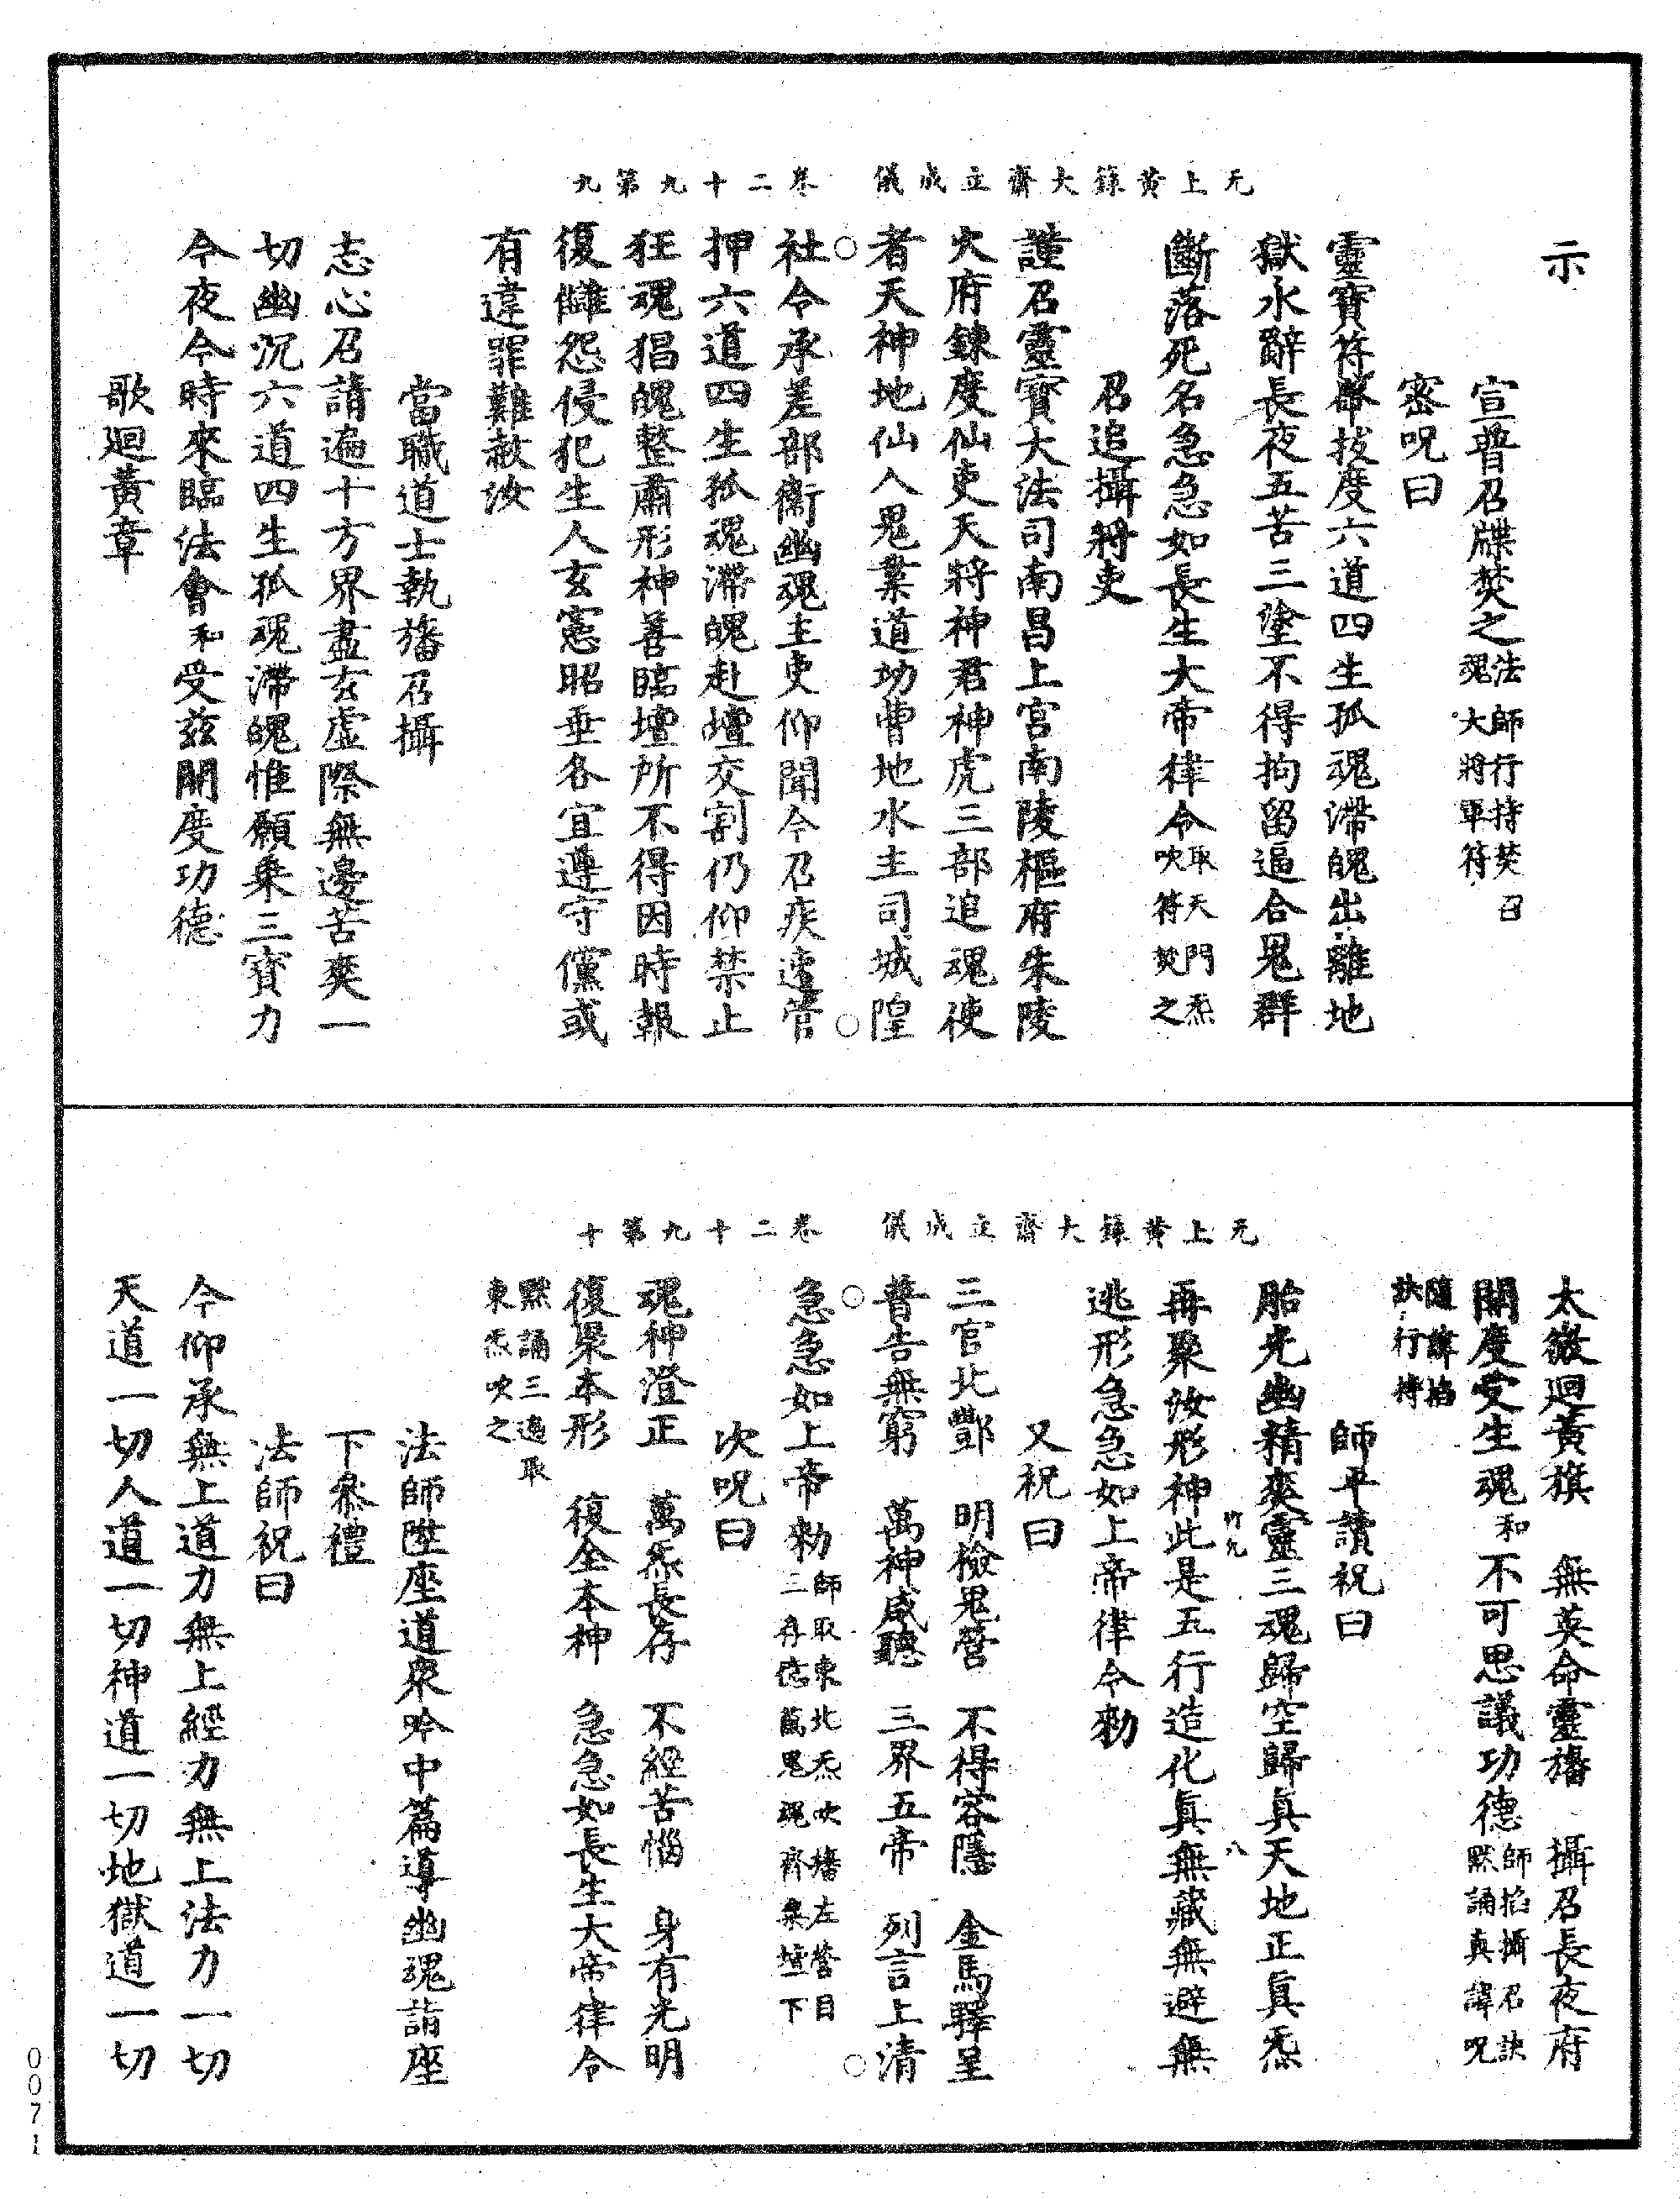 无上黃籙大齋立成儀　卷二十九第九
示
宣普召牒焚之法師行持焚召魂大將軍符
密呪曰
靈寶符命拔度六道四生孤魂滯魄出離地
獄水辭長夜五苦三塗不得拘留逼合鬼群
斷落死名急急如長生大帝律令取天門炁吹符焚之
召追攝將吏
謹召靈寶大法司南昌上宮南陵樞府朱陵
火府鍊度仙吏天將神君神虎三部追魂使
者天神地仙人鬼業道功曹地水主司城隍
社令承差部衛幽魂主吏仰聞今召疾速管
押六道四生孤魂滯魄赴壇交割仍仰禁止
狂魂猖魄整肅形神善臨壇所不得因時報
復讎怨侵犯生人玄憲昭垂各宜遵守儻或
有違罪難赦汝
當職道士執旛召攝
志心召請遍十方界盡玄虛際無邊苦爽一
切幽沉六道四生孤魂滯魄惟願乘三寶力
今夜今時來臨法會和受茲開度功德
歌迴黃章
无上黃籙大齋立成儀　卷二十九第十
太微迴黃旗　無英命靈旛　攝召長夜府
開度受生魂和不可思議功德師掐攝召訣默誦真諱呪
隨諱掐訣行持
師平讀祝曰
胎光幽精爽靈三魂歸空歸真天地正真炁
再聚汝形神此是五行造化真無藏無避無
逃形急急如上帝律令勑
又祝曰
三官北酆　明檢鬼營　不得容隱　金馬驛呈
普告無窮　萬神咸聽　三界五帝　列言上清
急急如上帝勑師取東北炁吹旛左營目三存億萬鬼魂齊集壇下
次呪曰
魂神澄正　萬炁長存　不經苦惱　身有光明
復聚本形　復全本神　急急如長生大帝律令
默誦三遍取東炁吹之
法師陞座道眾吟中篇導幽魂詣座
下叅禮
法師祝曰
今仰承無上道力無上經力無上法力一切
天道一切人道一切神道一切地獄道一切
竹九　八
0071